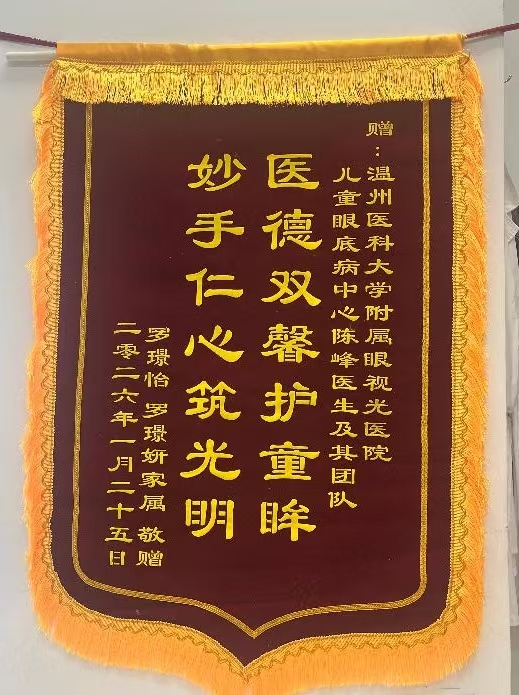 赠：温州医科大学附属眼视光医院
儿童眼底病中心陈峰医生及其团队
医德双馨护童眸
妙手仁心筑光明
罗璟怡 罗璟妍家属 敬赠
二零二六年一月二十五日